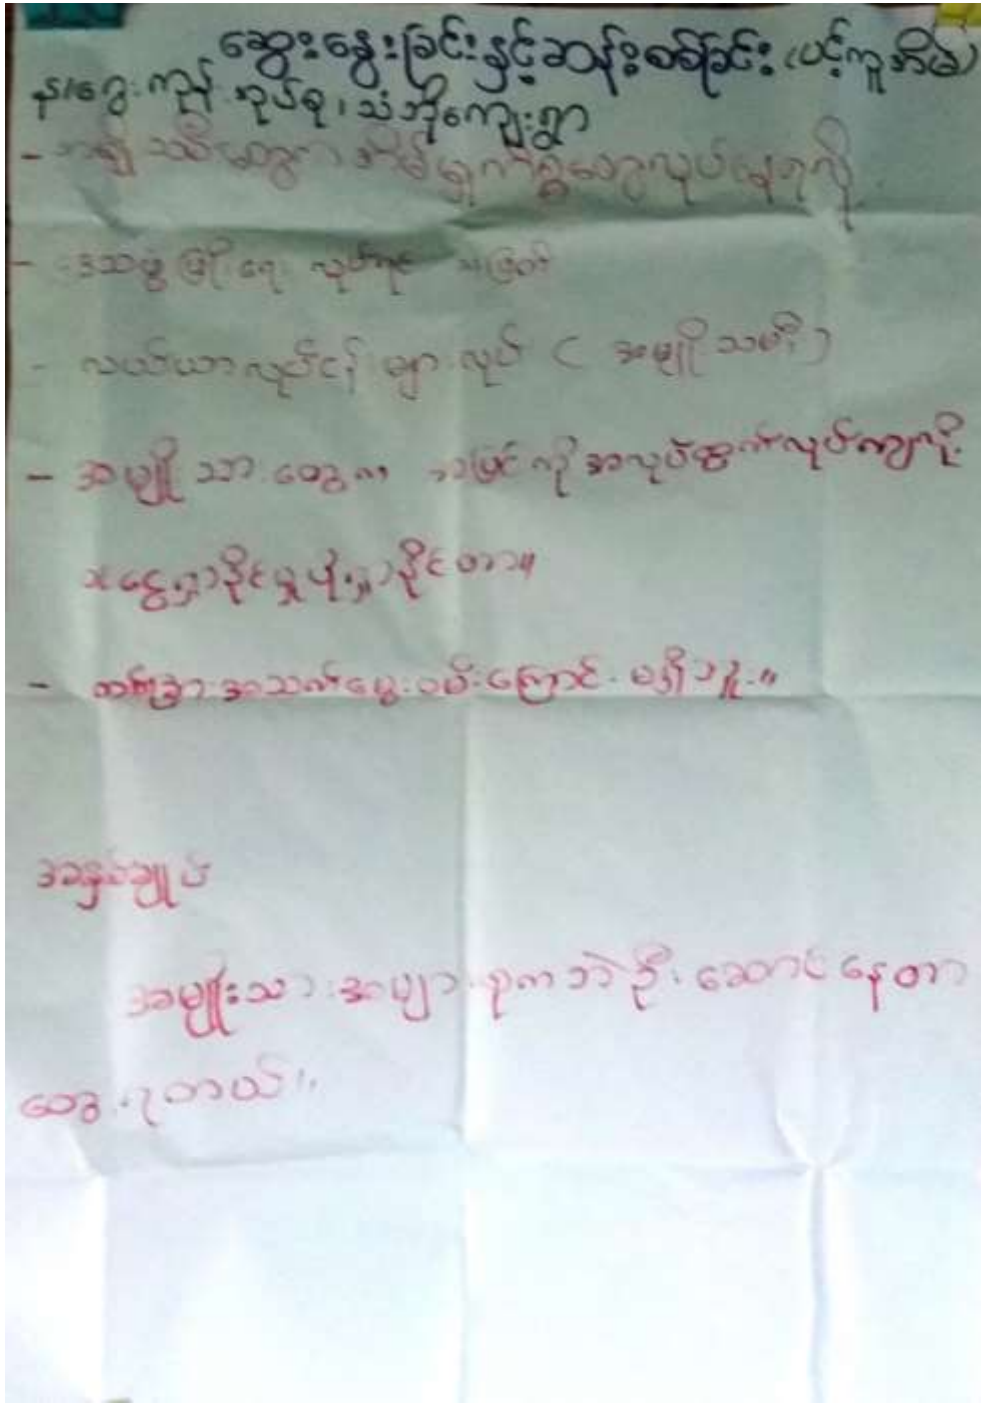 ဆွေးနွေးခြင်းနှင့်ဆန်းစစ်ခြင်း (ပင့်ကူအိမ်)
န/ငွေ ကုန် အုပ်စု၊ သံဘိုကျေးရွာ
- အမျိုးသမီးတွေက အိမ်မှုကိစ္စတွေလုပ်နေရလို့
- ဒေသဖွံ့ဖြိုးရေး လုပ်ရင်
- လယ်ယာလုပ်ငန်း များ လုပ် ( အမျိုးသမီး )
- အမျိုးသား တွေက အပြင် ကို အလုပ်ထွက်လုပ်ကျလို့
ငွေရှာနိုင်ရှုပိုရှာနိုင်တာ။
- တစ်ခြား အသက်မွေး ဝမ်းကြောင်း မရှိဘူး။
အနှစ်ချုပ်
အမျိုးသား အများ စုကဘဲ ဦး ဆောင်နေတာ
တွေ့ ရတယ်။